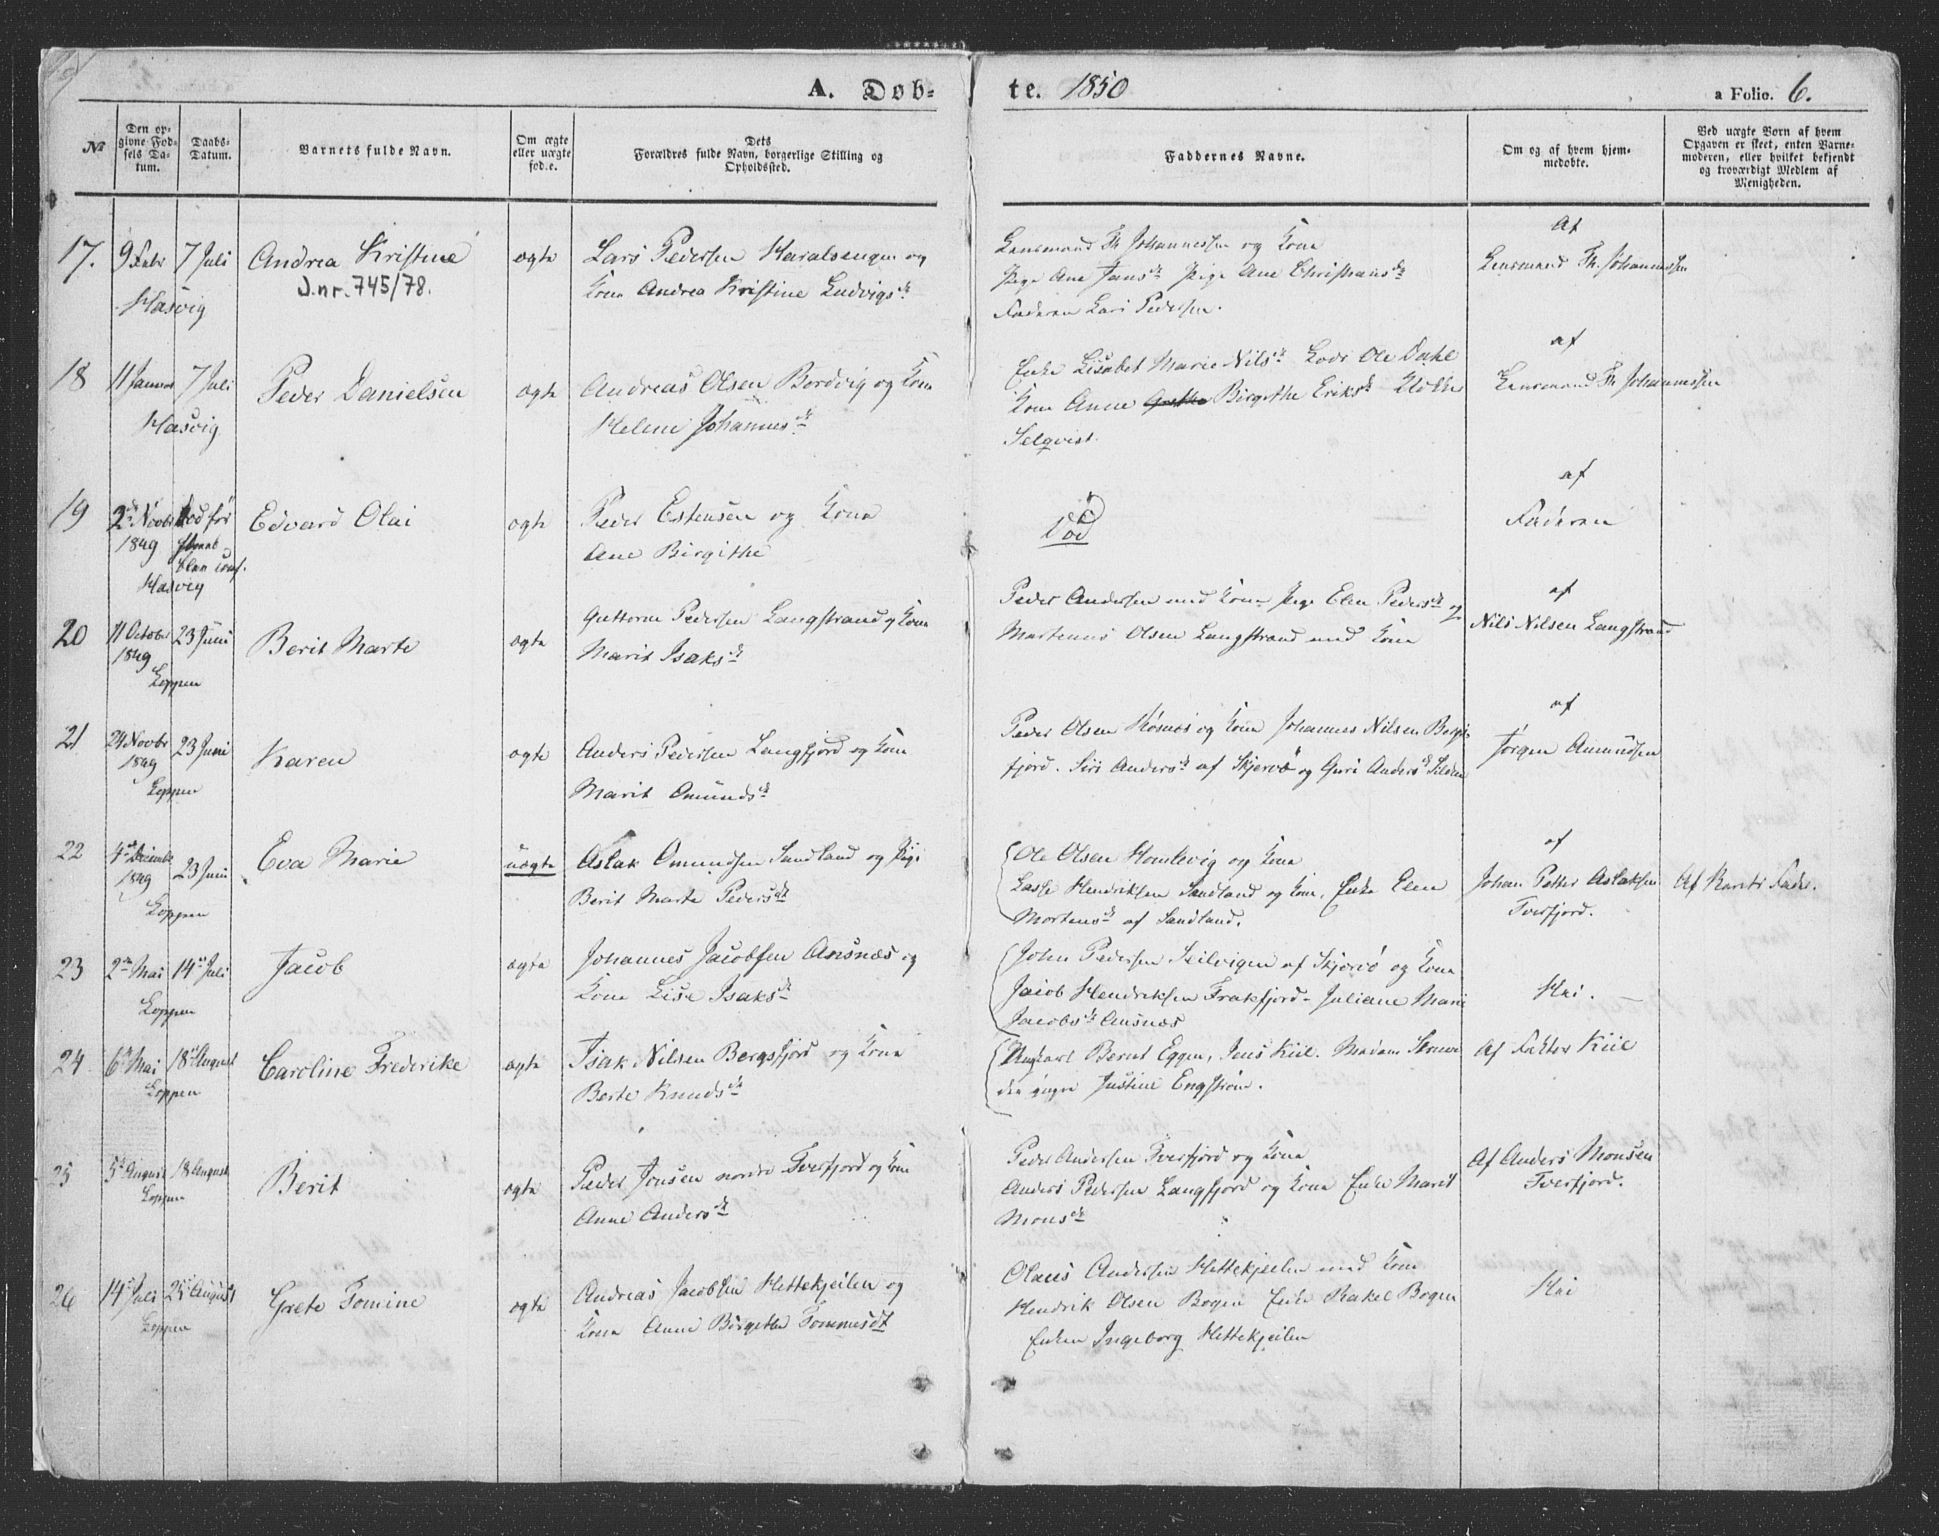 A. Døb-
te. 1850
a Folio. 6.
№
Den op-
givne Fød-
sels Da-
tum.
Daabs-
Datum.
Barnets fulde Navn.
Om ægte
eller uægte
fød.e.
Dets
Forældres fulde Navn, borgerlige Stilling og
Opholdssted.
Faddernes Navne.
Om og af hvem hjem-
medøbte.
Ved uægte Born af hvem
Opgaven er skeet, enten Barne-
moderen, eller hvilket bekjendt
og troværdigt Medlem af
Menigheden.
17. 9 Febr 7 Juli Andrea Kristine ægte Lars Pedersen Haralsengen og
Hasvig
J.nr. 745/78.
Kone Andrea Kristine Ludvigsdt
Lensmand Th. Johannessen og Kone
Pige Ane Jansdt Pige Ane Christiansdt
Faderen Lars Pedersen.
Af
Lensmand Th. Johannessen
18 11 Januar 7 Juli Peder Danielsen ægte Andreas Olsen Bordvig og Kone
Hasvig
Helene Johannesdt
Enke Lisabet Marie Nilsdt Lods Ole Dahl
Kone Anne Grethe Birgithe Eriksdt Klokker
Selqvist.
af
Lensmand Th. Johannessen
19 2den Novbr Død før Edvard Olai ægte Peder Estensen og Kone
1849
Hasvig
Ane Birgithe
Død
af
Faderen
20 11 Octobr 23 Juni Berit Marte ægte Guttorm Pedersen Langstrand og Kone
1849
Loppen
Marit Isaksdt
Peder Andersen med Kone Pige Elen Pedersdt og
Martenus Olsen Langstrand med Kone
af
Nils Nilsen Langstrand
21 24 Novbr 23 Juni Karen ægte Anders Pedersen Langfjord og Kone
1849
Loppen
Marit Omundsdt
Peder Olsen og Kone Johannes Nilsen Bergs-
fjord. Siri Andersdt af Skjervö og Guri Andersdt Silden
af
Jörgen Amundsen
22 4de Decembr 23 Juni Eva Marie uægte Aslak Omundsen Sandland og Pige
1849
Loppen
Berit Marte Pedersdt
Ole Olsen Homlevig og Kone
Lasse Hendriksen Sandland og Kone, Enke Elen
Mortensdt af Sandland.
af
Johan Petter Aslaksen
Tverfjord.
Af Barnets Fader.
23 2den Mai 14de Juli Jacob ægte Johannes Jacobsen Ansnæs og
Loppen
Kone Lise Isaksdt
John Pedersen Seilvigen af Skjervö og Kone
Jacob Hendriksen Frakfjord - Juliane Marie
Jacobsdt Ansnæs
Hai.
24 6te Mai 18de August Caroline Frederike ægte Isak Nilsen Bergsfjord og Kone
Loppen
Berte Knudsdt
Ungkarl Bernt Eggen, Jens Kiil. Madam
den yngre Justine Engström.
Af Faktor Kiil
25 5te August 18 August Berit ægte Peder Jonsen nordre Tverfjord og Kone
Loppen
Anne Andersdt
Peder Andersen Tverfjord og Kone
Anders Pedersen Langfjord og Kone Enke Marit
Monsdt
Af Anders Monsen
Tverfjord.
26 14de Juli 25de August Grete Tomine ægte Andreas Jacobsen Hettekjeilen og
Loppen
Kone Anne Birgethe Tommesdt
Olaus Andersen Hettekjeilen med Kone
Hendrik Olsen Bogen Enke Rakel Bogen
Enken Ingeborg Hettekjeilen
Hai